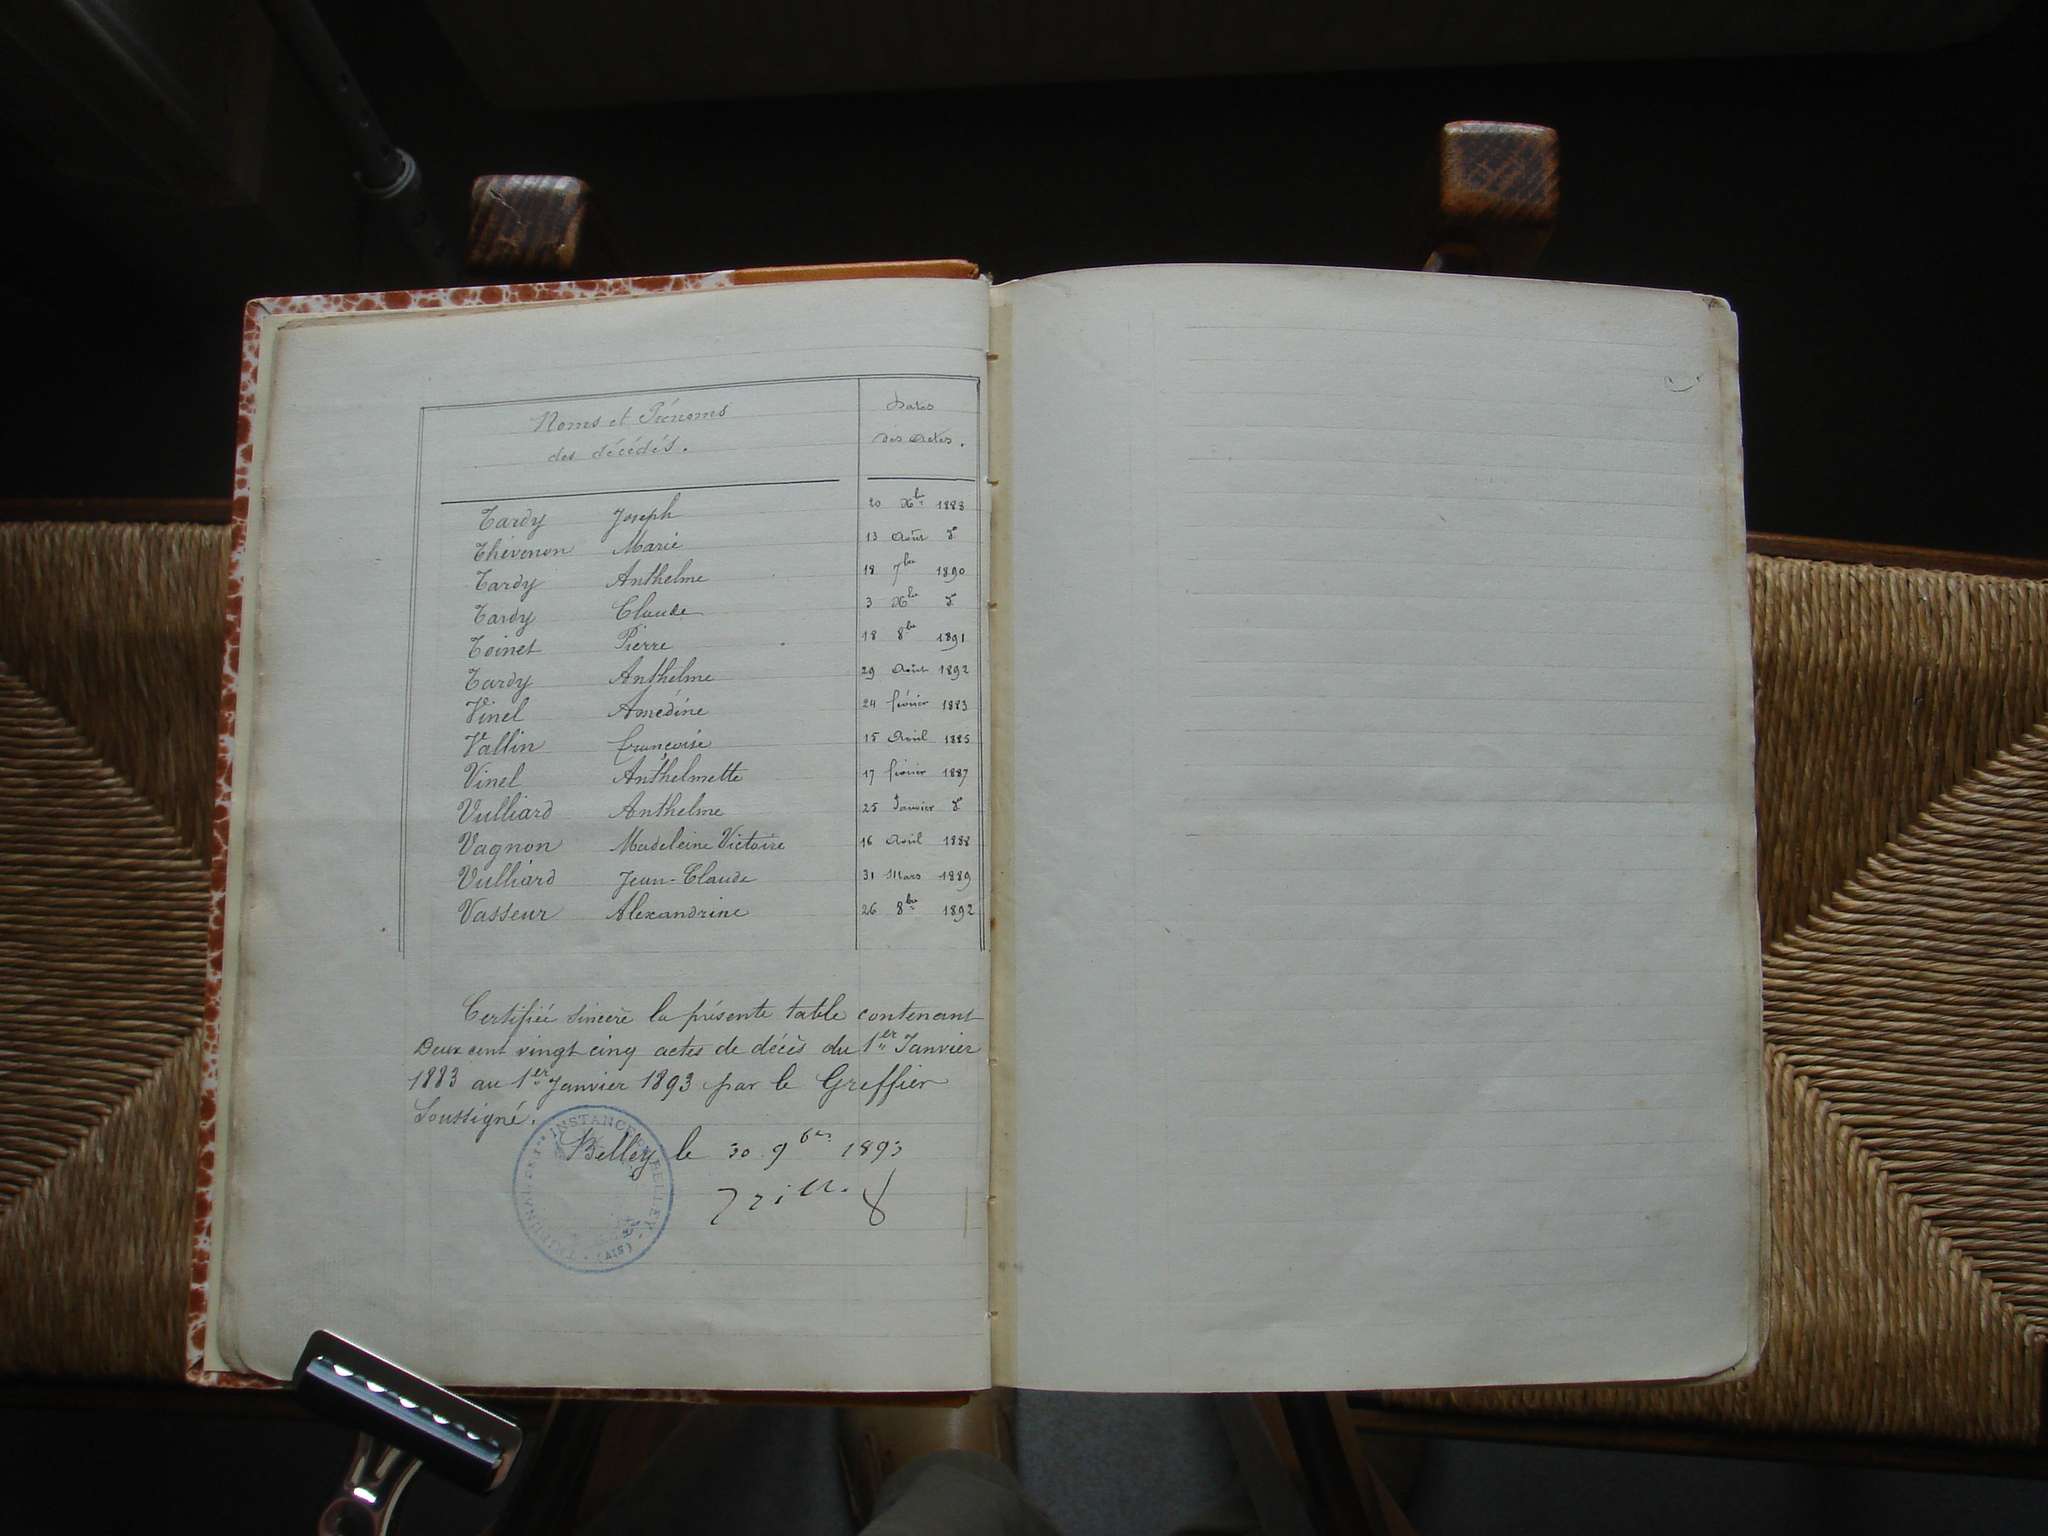 Noms et Prénoms
des décédés.
Dates
des actes.
Tardy Joseph 20 Xbre 1883
Thévenon Marie 13 Août do
Tardy Anthelme 18 7bre 1890
Tardy Claude 3 Xbre do
Toinet Pierre 18 8bre 1891
Tardy Anthelme 29 Août 1892
Vinel Amédine 24 février 1883
Vallin Françoise 15 Avril 1885
Vinel Anthelmette 17 février 1887
Vulliard Anthelme 25 Janvier do
Vagnon Madeleine Victoire 16 Avril 1888
Vulliard Jean-Claude 31 Mars 1889
Vasseur Alexandrine 26 8bre 1892
Certifiée sincère la présente table contenant
Deux cent vingt cinq actes de décès du 1er Janvier
1883 au 1er Janvier 1893 par le Greffier
Soussigné.
Belley le 30 9bre 1893
TRIBUNAL DE 1re INSTANCE BELLEY
(AIN)